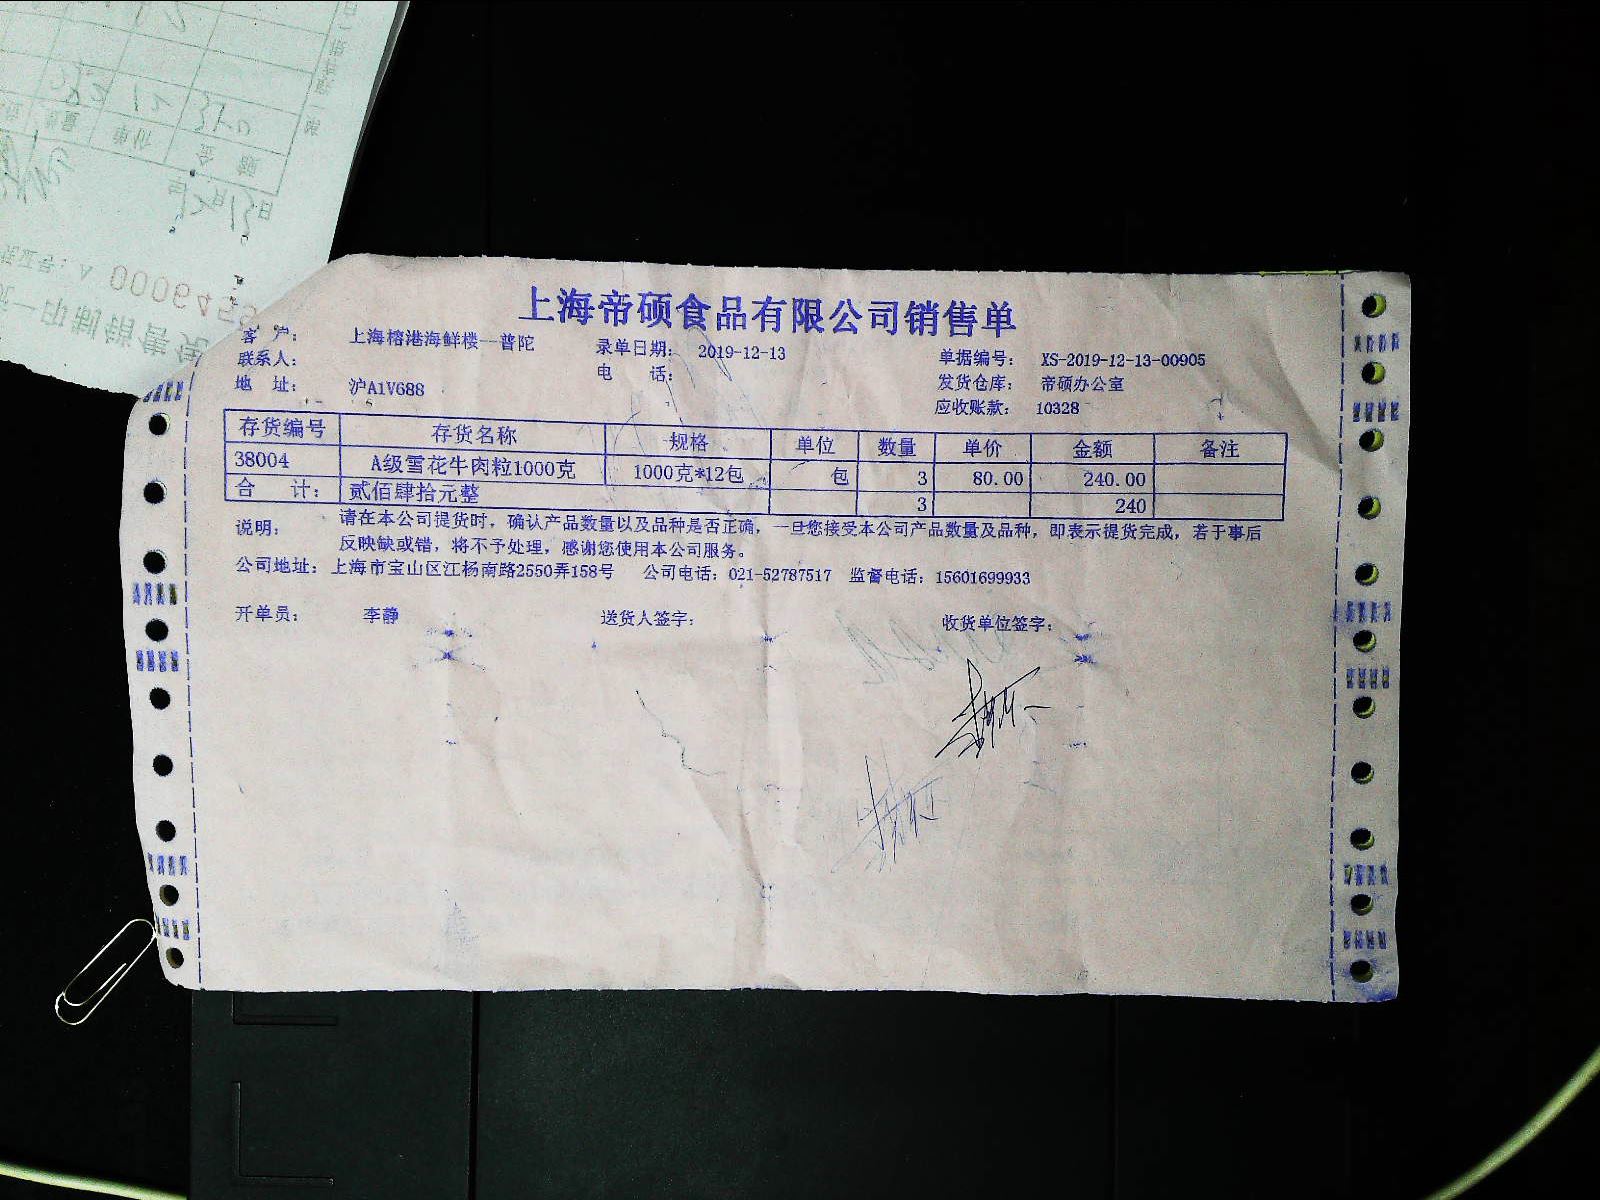 00064559
上海帝硕食品有限公司销售单
客 户： 上海榕港海鲜楼--普陀 录单日期： 2019-12-13 单据编号： XS-2019-12-13-00905
联系人： 电 话： 发货仓库： 帝硕办公室
地 址： 沪A1V688 应收账款： 10328
存货编号 存货名称 规格 单位 数量 单价 金额 备注
38004 A级雪花牛肉粒1000克 1000克*12包 包 3 80.00 240.00
合 计： 贰佰肆拾元整 3 240
说明： 请在本公司提货时，确认产品数量以及品种是否正确，一旦您接受本公司产品数量及品种，即表示提货完成，若于事后
反映缺或错，将不予处理，感谢您使用本公司服务。
公司地址： 上海市宝山区江杨南路2550弄158号 公司电话：021-52787517 监督电话：15601699933
开单员： 李静 送货人签字： 收货单位签字：